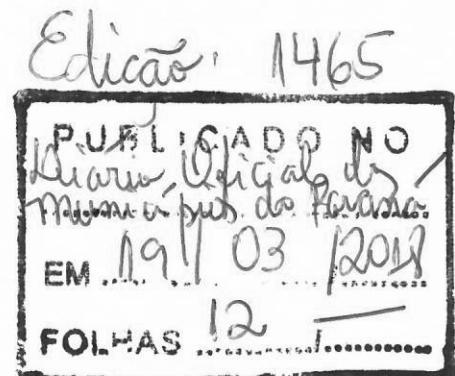 Edição: 1465
PUBLICADO NO
Diario Oficial dos
Municípios do Paraná
EM 19 / 03 / 2018
FOLHAS 12 /